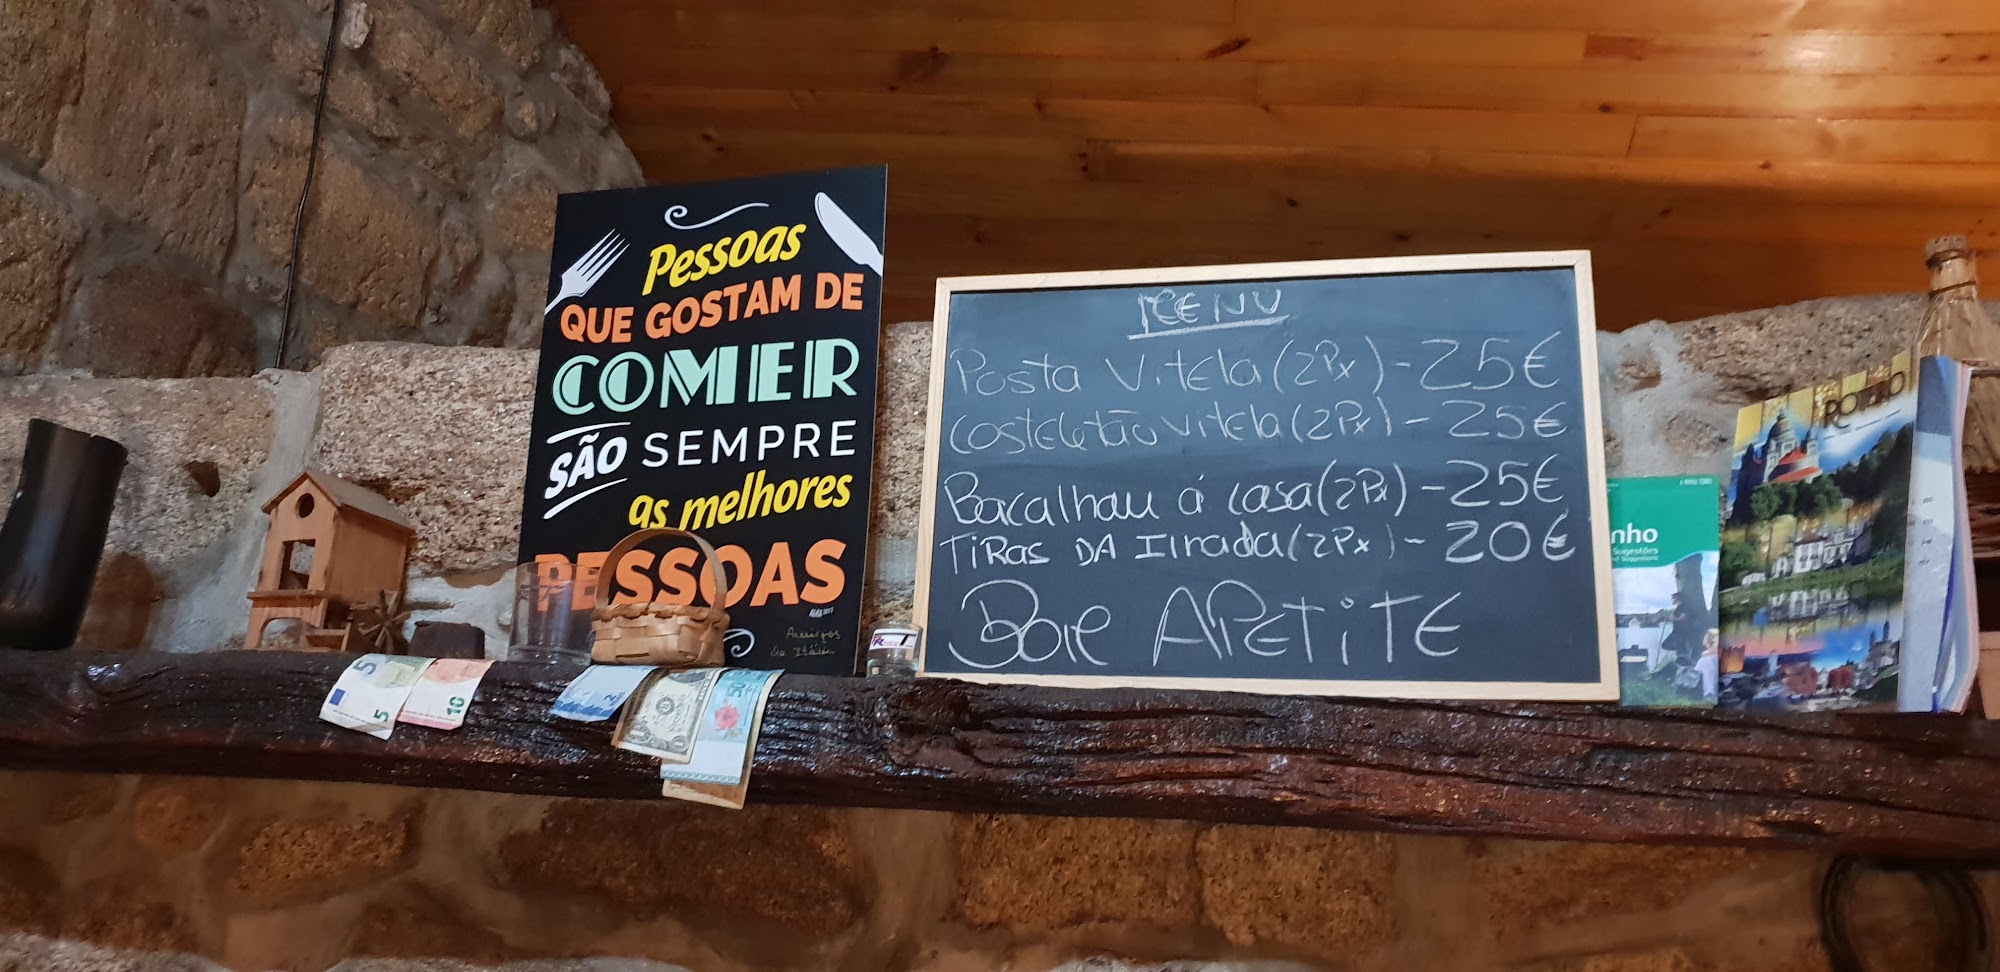 Pessoas
QUE GOSTAM DE
COMER
SÃO SEMPRE
as melhores
PESSOAS
Amigos
MENU
Posta Vitela (2Px) - 25€
Costeletão Vitela (2Px) - 25€
Bacalhau á casa (2Px) - 25€
TIRAS DA Ilhada (2Px) - 20€
Bom APETITE
5
5
10
2
1
50
nho
Sugestões